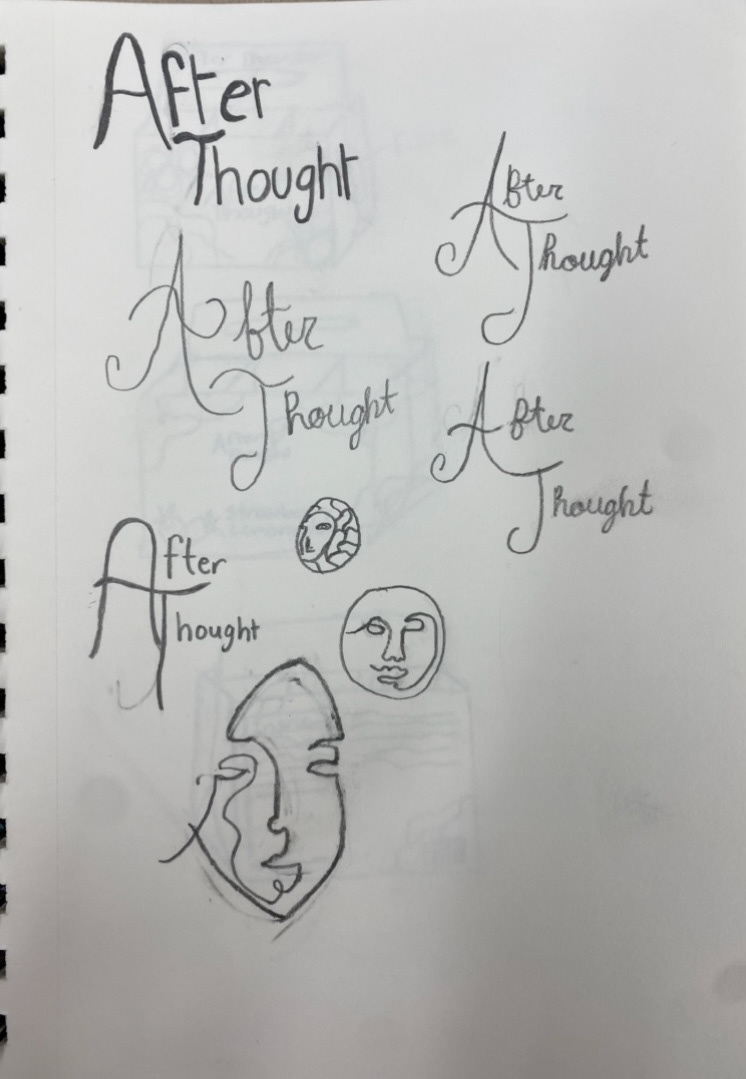 After
Thought
After
Thought
After
Thought
After
Thought
After
Thought